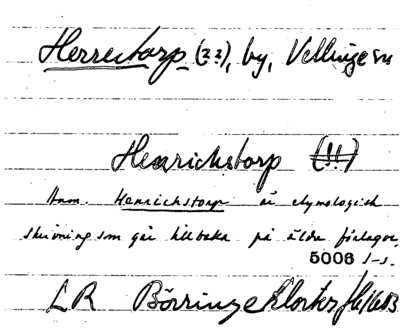 Herrestorp (??), by, Vellinge sn
Henrichstorp (!!)
Anm. Henrichstorp är etymologisk
skrivning som går tillbaka på äldre förlagor.
5006 1-1.
LR Börringekloster